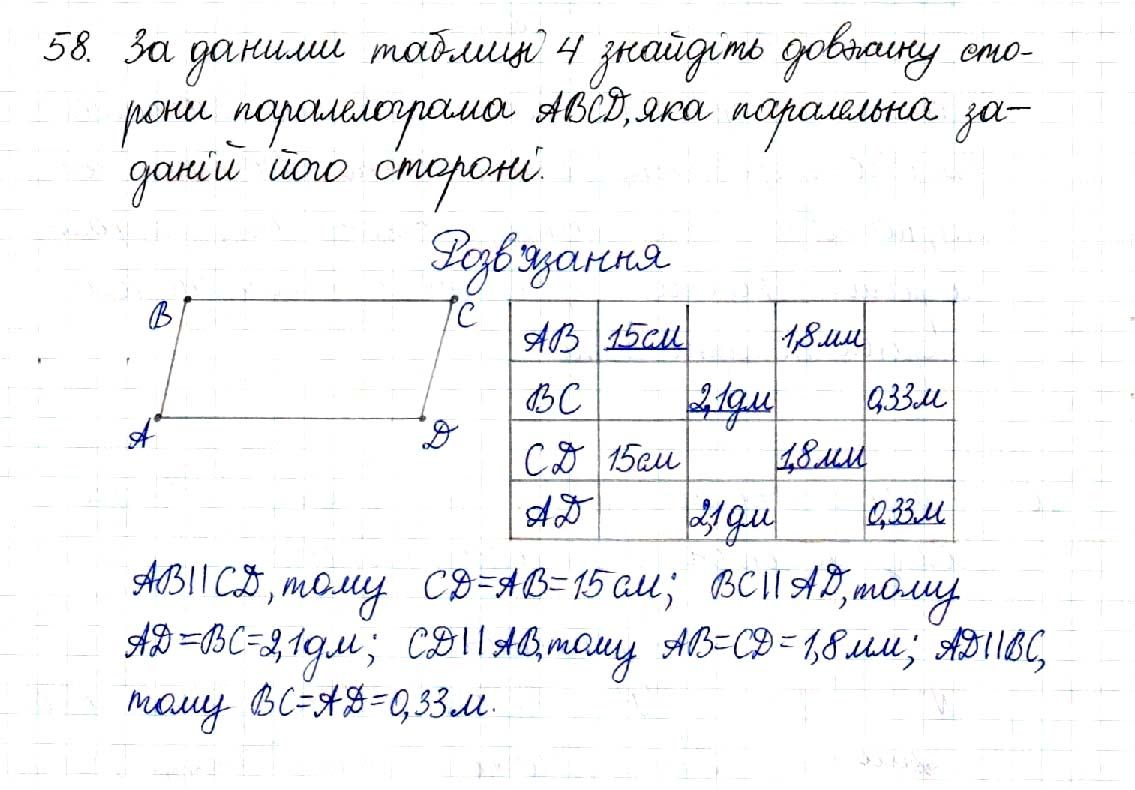 58. За даними таблиці 4 знайдіть довжину сто-
рони паралелограма ABCD, яка паралельна за-
даній його стороні.
Розв'язання
B C
A D
AB 15см 1,8мм
BC 2,1дм 0,33м
CD 15см 1,8мм
AD 2,1дм 0,33м
AB||CD, тому CD=AB=15см; BC||AD, тому
AD=BC=2,1дм; CD||AB, тому AB=CD=1,8мм; AD||BC,
тому BC=AD=0,33м.